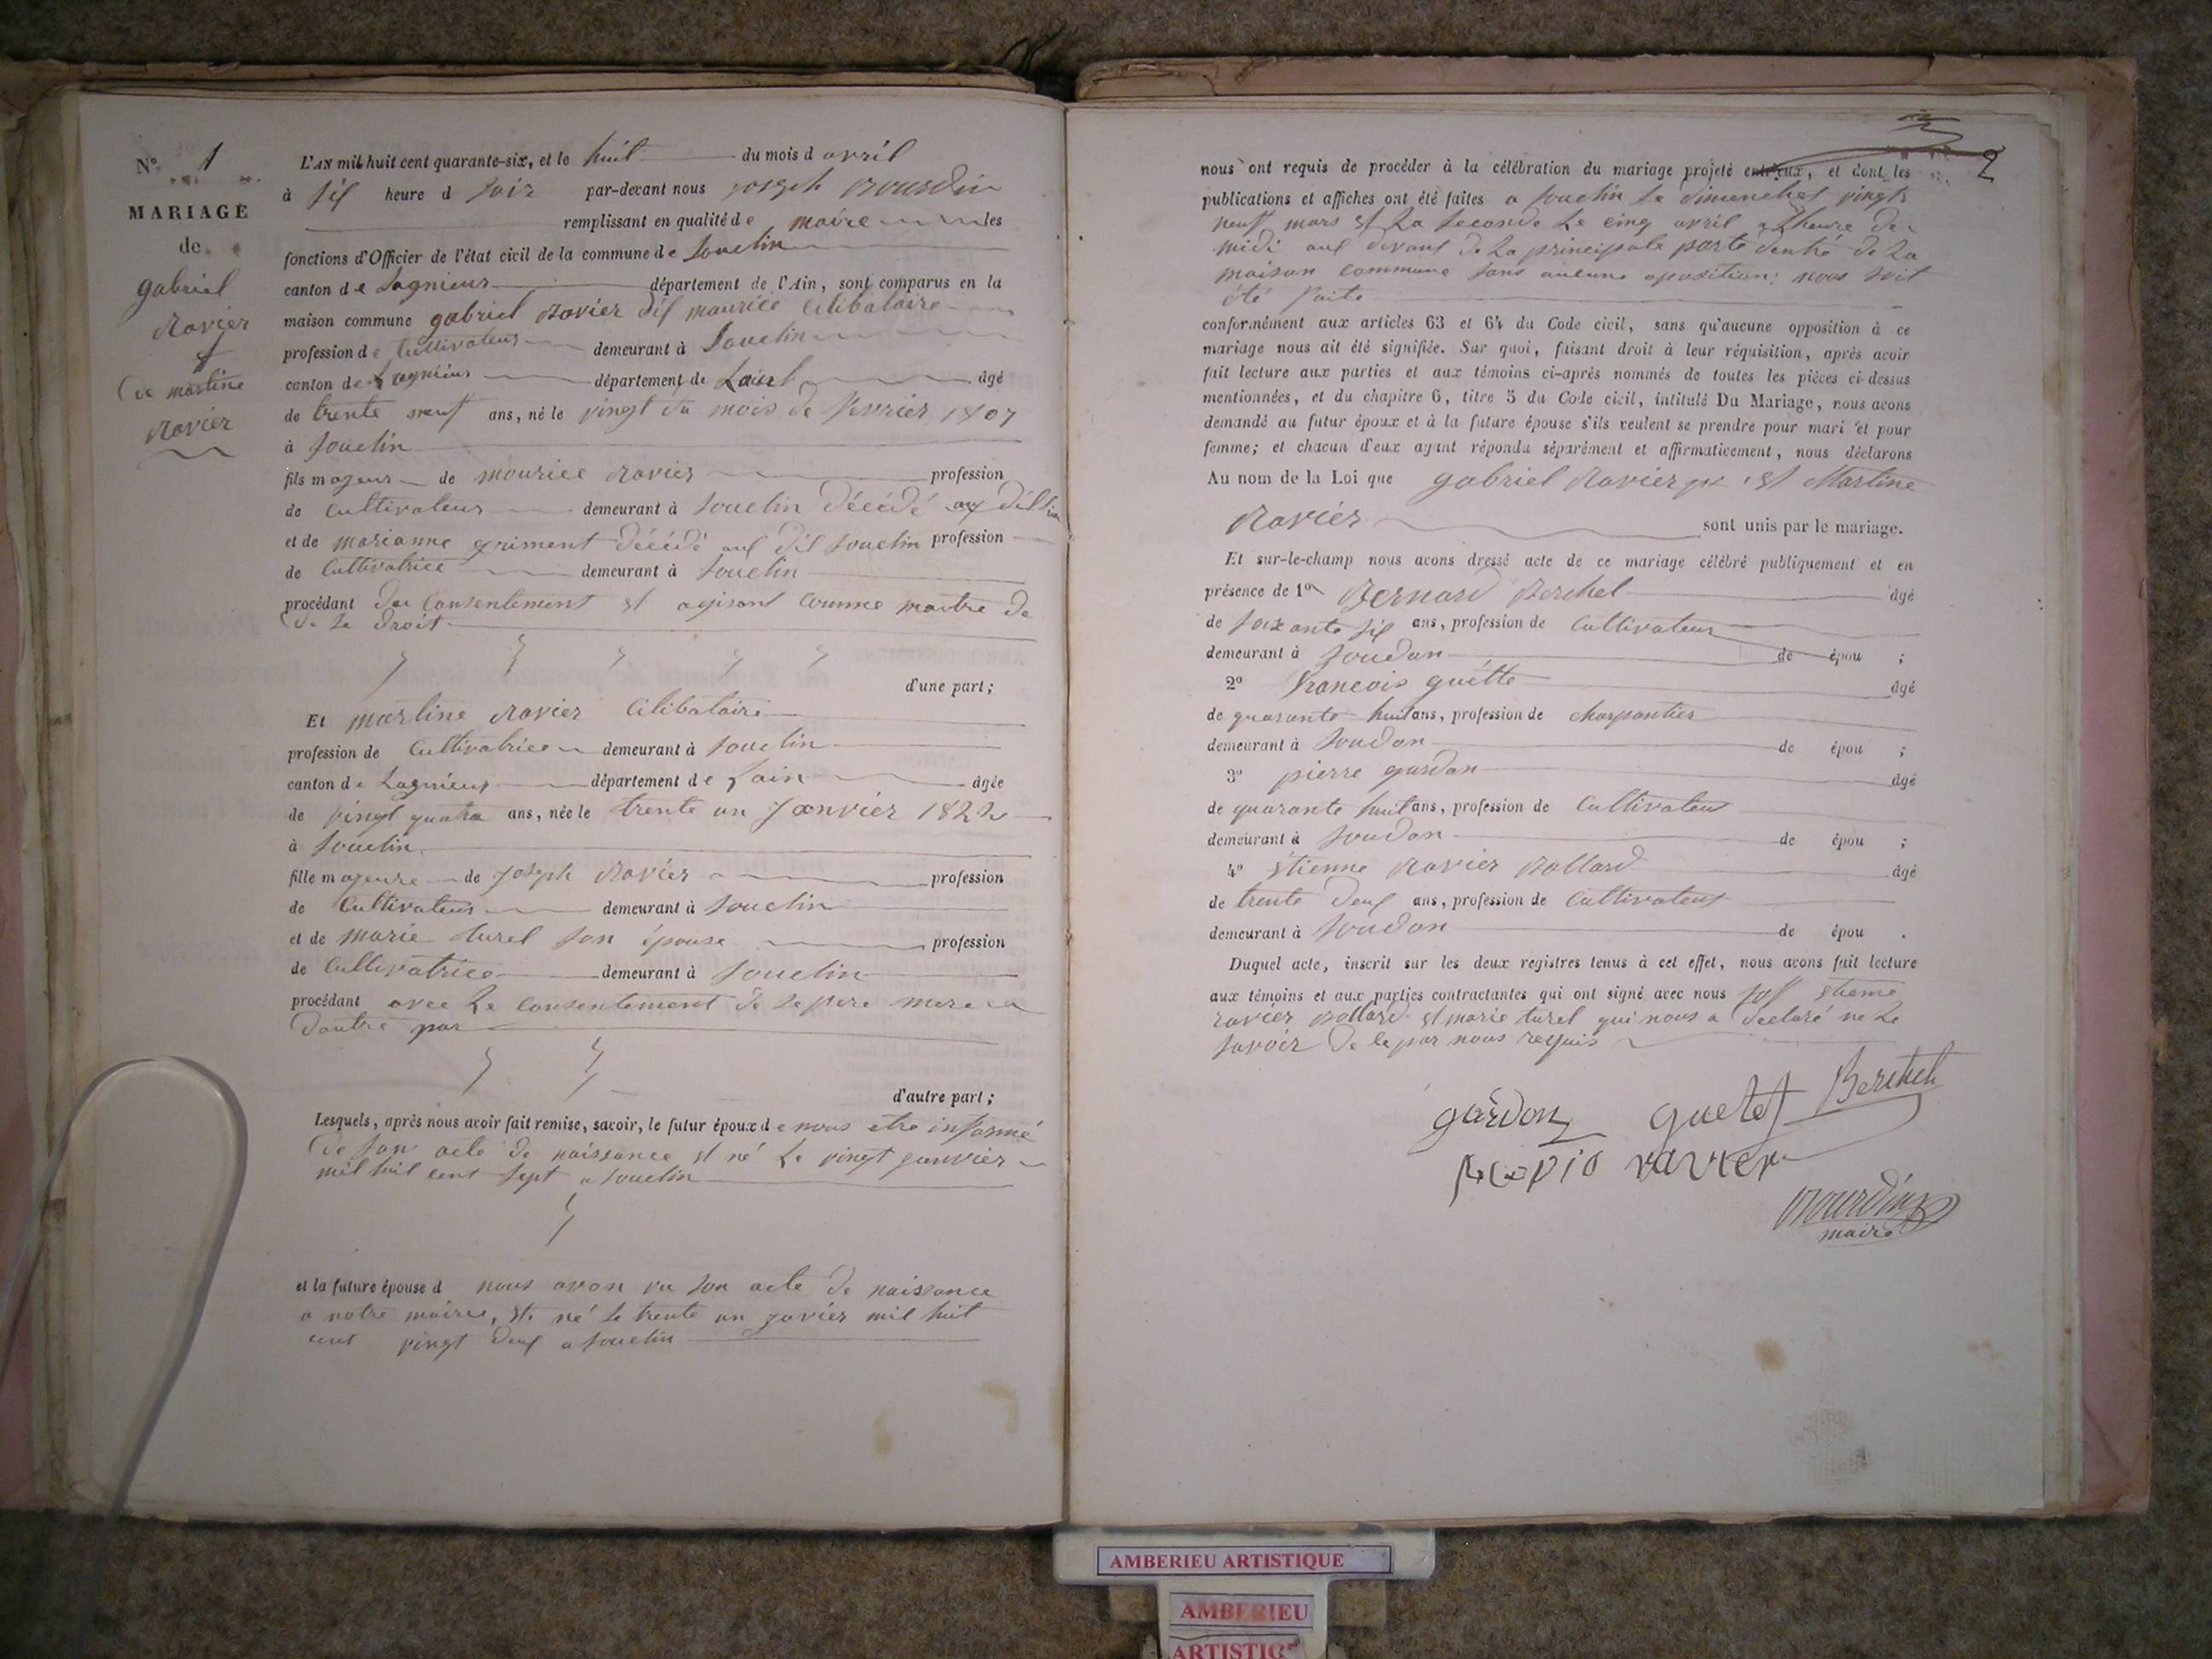 N° 1
MARIAGE
de
gabriel
Ravier
et
de martine
Ravier
L'AN mil huit cent quarante-six, et le huit du mois d avril
à six heure d soir par-devant nous joseph Bourdin
remplissant en qualité de maire les
fonctions d'Officier de l'état civil de la commune de Souclin
canton de Lagnieux département de l'Ain, sont comparus en la
maison commune gabriel Ravier dit maurice Célibataire
profession de Cultivateur demeurant à Souclin
canton de Lagnieux département de âgé
de trente neuf ans, né le vingt du mois de fevrier 1807
à Souclin
fils majeur de mourice Ravier profession
de Cultivateur demeurant à Souclin décédé au dit
et de marianne griment décédé aux dit Souclin profession
de Cultivatrice demeurant à Souclin
procédant du Consentement et agisant Comme maitre de
de se droit
d'une part;
Et martine Ravier Célibataire
profession de Cultivatrice demeurant à Souclin
canton de Lagnieux département de Lain âgée
de vingt quatre ans, née le trente un Janvier 1822
à Souclin
fille majeure de Joseph Ravier profession
de Cultivateur demeurant à Souclin
et de marie turel son épouse profession
de Cultivatrice demeurant à Souclin
procédant avec Le Consentement de se pere mere
dautre par
d'autre part;
Lesquels, après nous avoir fait remise, savoir, le futur époux de nous etre informé
de son acte de naissance et né Le vingt janvier
mil huit cent sept a Souclin
et la future épouse d nous avon vu son acte de naissance
a notre mairie, et né le trente un javier mil huit
cent vingt deux a Souclin
2
nous ont requis de procéder à la célébration du mariage projeté entr'eux, et dont les
publications et affiches ont été faites a Souclin Le dimenches vingt
neuf mars et La Seconde Le cinq avril a Lheure de
midi aux devant de La principale porte dentré de La
maison Commune sans aucune oposition nous soit
été faite
conformément aux articles 63 et 64 du Code civil, sans qu'aucune opposition à ce
mariage nous ait été signifiée. Sur quoi, faisant droit à leur réquisition, après avoir
fait lecture aux parties et aux témoins ci-après nommés de toutes les pièces ci-dessus
mentionnées, et du chapitre 6, titre 5 du Code civil, intitulé Du Mariage, nous avons
demandé au futur époux et à la future épouse s'ils veulent se prendre pour mari et pour
femme; et chacun d'eux ayant répondu séparément et affirmativement, nous déclarons
Au nom de la Loi que gabriel Ravier et Martine
Ravier sont unis par le mariage.
Et sur-le-champ nous avons dressé acte de ce mariage célébré publiquement et en
présence de 1° Bernard Berchet âgé
de soixante six ans, profession de Cultivateur
demeurant à Soudon de épou ;
2° francois guétte âgé
de quarante huit ans, profession de charpantier
demeurant à Soudon de épou ;
3° pierre gardon âgé
de quarante huit ans, profession de Cultivateur
demeurant à Soudon de épou ;
4° étienne Ravier Bollard âgé
de trente deux ans, profession de Cultivateur
demeurant à Soudon de épou .
Duquel acte, inscrit sur les deux registres tenus à cet effet, nous avons fait lecture
aux témoins et aux parties contractantes qui ont signé avec nous sof etienne
ravier Bollard et marie turel qui nous a declaré ne Le
savoir de le par nous requis
gardon guetet Berchet
ravier
Bourdin
maire
AMBERIEU ARTISTIQUE
AMBERIEU
ARTISTIQ